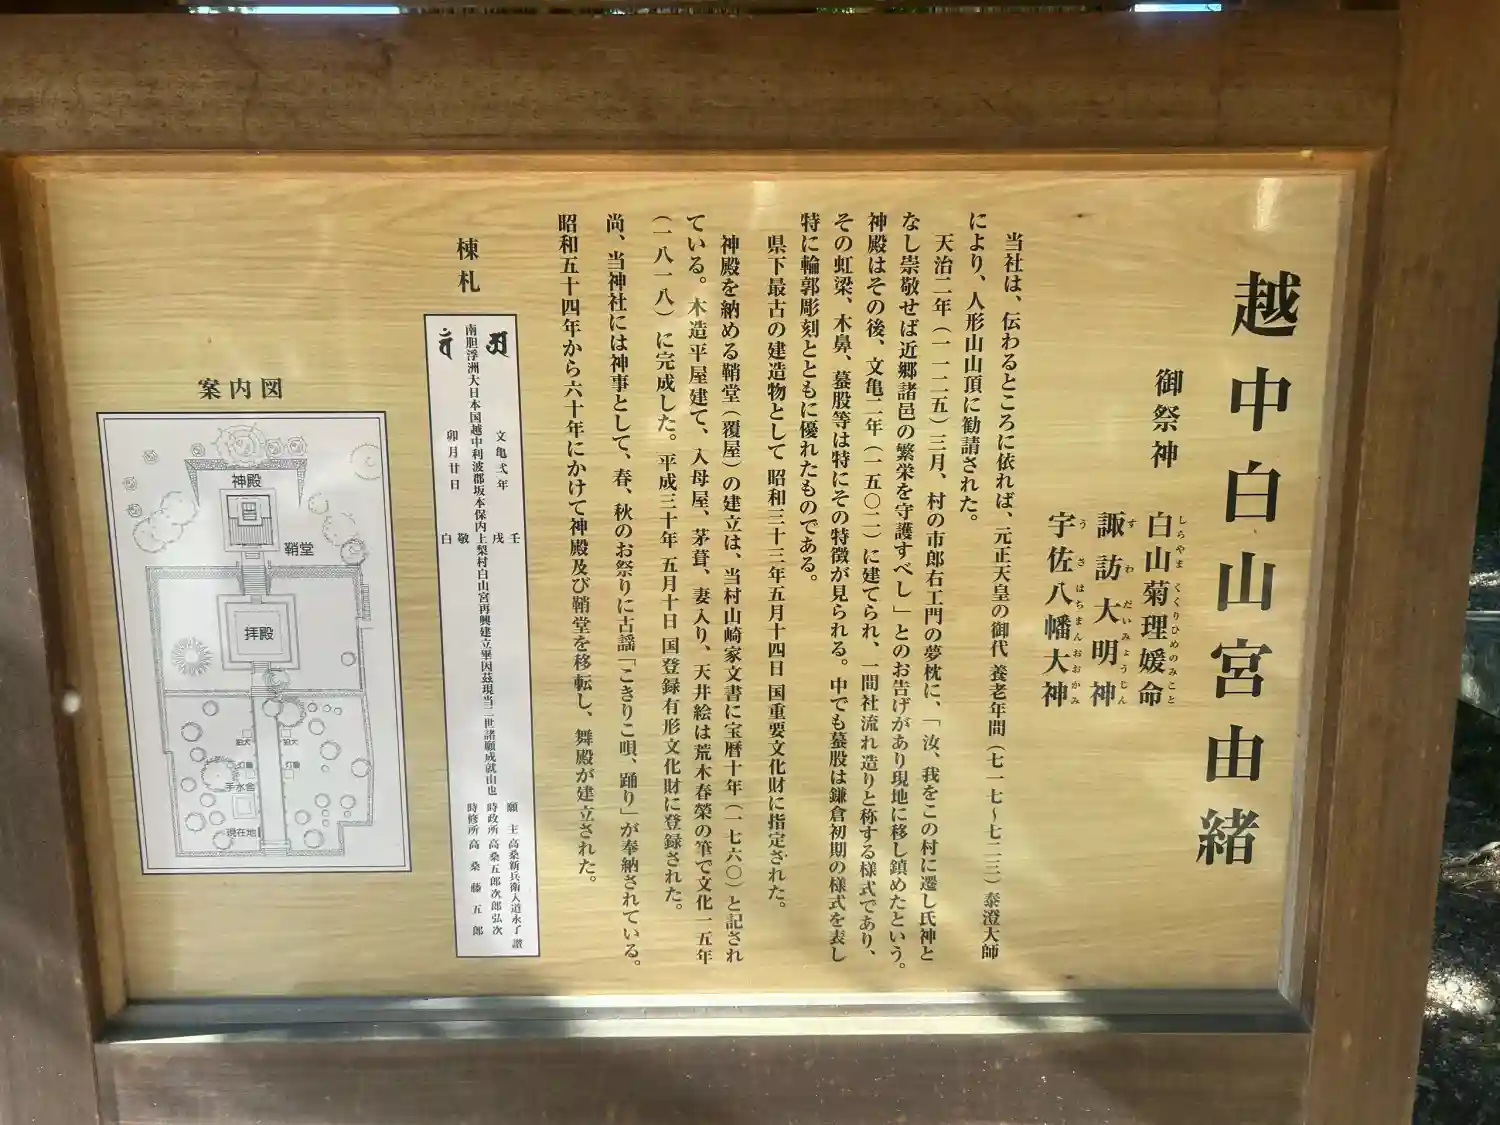 越中白山宮由緒
御祭神
白山菊理媛命
しらやまくくりひめのみこと
諏訪大明神
すわだいみょうじん
宇佐八幡大神
うさはちまんおおかみ
当社は、伝わるところに依れば、元正天皇の御代 養老年間（七一七〜七二三）泰澄大師
により、人形山山頂に勧請された。
天治二年（一一二五）三月、村の市郎右エ門の夢枕に、「汝、我をこの村に遷し氏神と
なし崇敬せば近郷諸邑の繁栄を守護すべし」とのお告げがあり現地に移し鎮めたという。
神殿はその後、文亀二年（一五〇二）に建てられ、一間社流れ造りと称する様式であり、
その虹梁、木鼻、蟇股等は特にその特徴が見られる。中でも蟇股は鎌倉初期の様式を表し
特に輪郭彫刻とともに優れたものである。
県下最古の建造物として 昭和三十三年五月十四日 国重要文化財に指定された。
神殿を納める鞘堂（覆屋）の建立は、当村山崎家文書に宝暦十年（一七六〇）と記され
ている。木造平屋建て、入母屋、茅葺、妻入り、天井絵は荒木春榮の筆で文化一五年
（一八一八）に完成した。平成三十年 五月十日 国登録有形文化財に登録された。
尚、当神社には神事として、春、秋のお祭りに古謡「こきりこ唄、踊り」が奉納されている。
昭和五十四年から六十年にかけて神殿及び鞘堂を移転し、舞殿が建立された。
棟札
文亀弐年 壬戌
願主 高桑新兵衛入道永了 讃
時政所 高桑五郎次郎弘次
南胆浮洲大日本国越中利波郡坂本保内上梨村白山宮再興建立畢因茲現当二世諸願成就由也
時修所 高桑藤五郎
卯月廿日 敬白
案内図
神殿
鞘堂
拝殿
狛犬
狛犬
灯籠
灯籠
手水舎
現在地